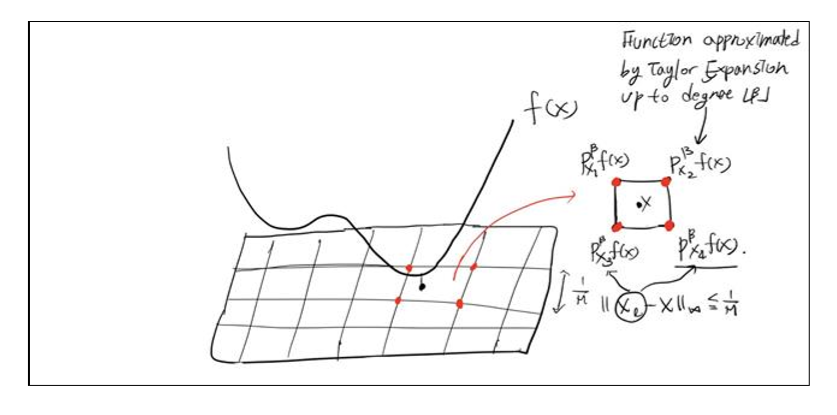 Function approximated
by Taylor Expansion
up to degree ⌊β⌋
f(x)
P^β_{x_1}f(x)
P^β_{x_2}f(x)
x
P^β_{x_3}f(x)
P^β_{x_4}f(x).
1/M
||x_ℓ - x||_∞ ≤ 1/M